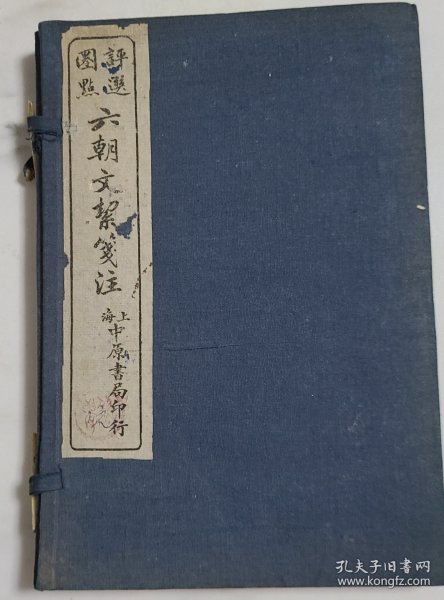 評選圈點
六朝文絜箋注
上海中原書局印行
孔夫子旧书网
www.kongfz.com